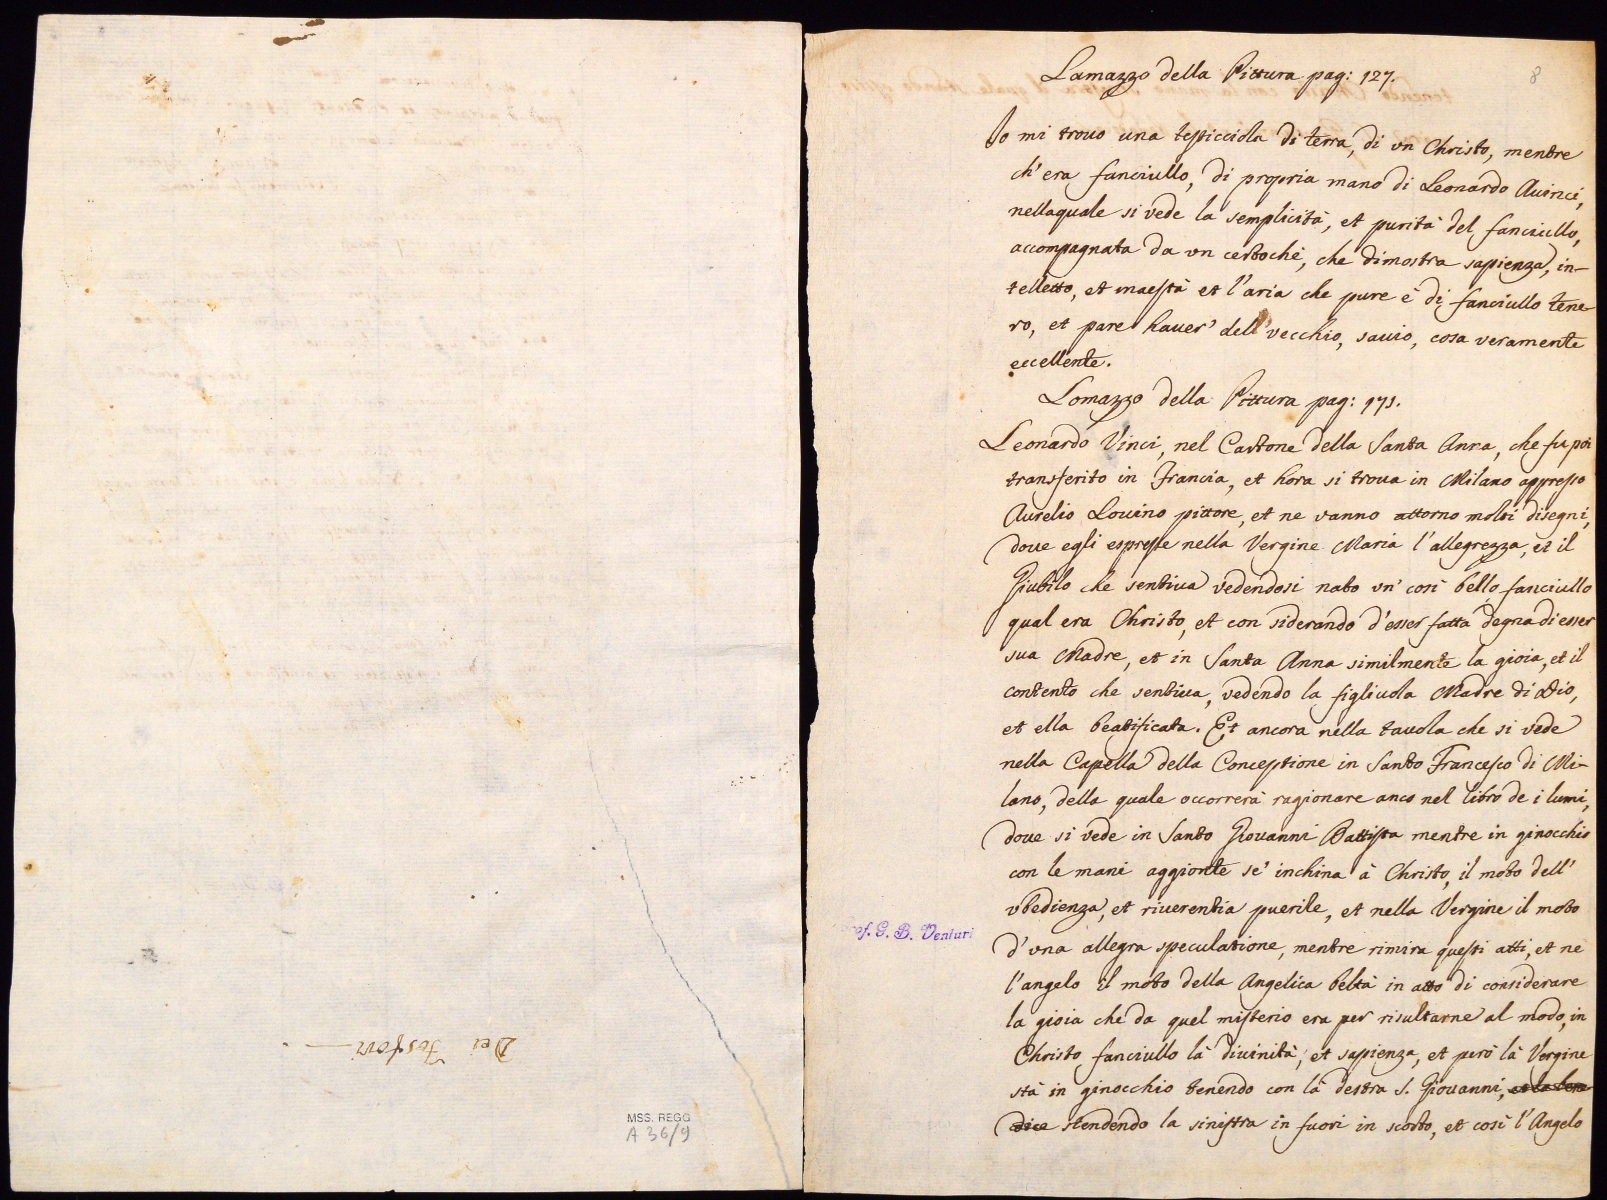 Dei Fosfori
MSS. REGG
A 36/9
8
Lamazzo della Pittura pag: 127.
Io mi trouo una testicciola di terra, di vn Christo, mentre
ch'era fanciullo, di propria mano di Leonardo Auinci,
nellaquale si vede la semplicità, et purità del fanciullo,
accompagnata da vn certoché, che dimostra sapienza, in-
telletto, et maestà et l'aria che pure è di fanciullo tene-
ro, et pare hauer' dell' vecchio, sauio, cosa veramente
eccellente.
Lomazzo della Pittura pag: 171.
Leonardo Vinci, nel Cartone della Santa Anna, che fu poi
transferito in Francia, et hora si troua in Milano appresso
Aurelio Louino pittore, et ne vanno attorno molti disegni,
doue egli espresse nella Vergine Maria l'allegrezza, et il
Giubilo che sentiua vedendosi nato vn' così bello fanciullo
qual era Christo, et con siderando d'esser fatta degna di esser
sua Madre, et in Santa Anna similmente la gioia, et il
contento che sentiua, vedendo la figliuola Madre di Dio,
et ella beatificata. Et ancora nella tauola che si vede
nella Capella della Conceptione in Santo Francesco di Mi-
lano, della quale occorrerà ragionare anco nel libro de i lumi,
doue si vede in Santo Giouanni Battista mentre in ginocchio
con le mani aggionte se' inchina à Christo, il moto dell'
vbedienza, et riuerentia puerile, et nella Vergine il moto
d'vna allegra speculatione, mentre rimira questi atti, et ne
l'angelo il moto della Angelica beltà in atto di considerare
la gioia che da quel misterio era per risultarne al modo, in
Christo fanciullo là diuinità, et sapienza, et però là Vergine
stà in ginocchio tenendo con là destra S. Giouanni, et lo bene
dice stendendo la sinistra in fuori in scorto, et così l'Angelo
of. G. B. Venturi